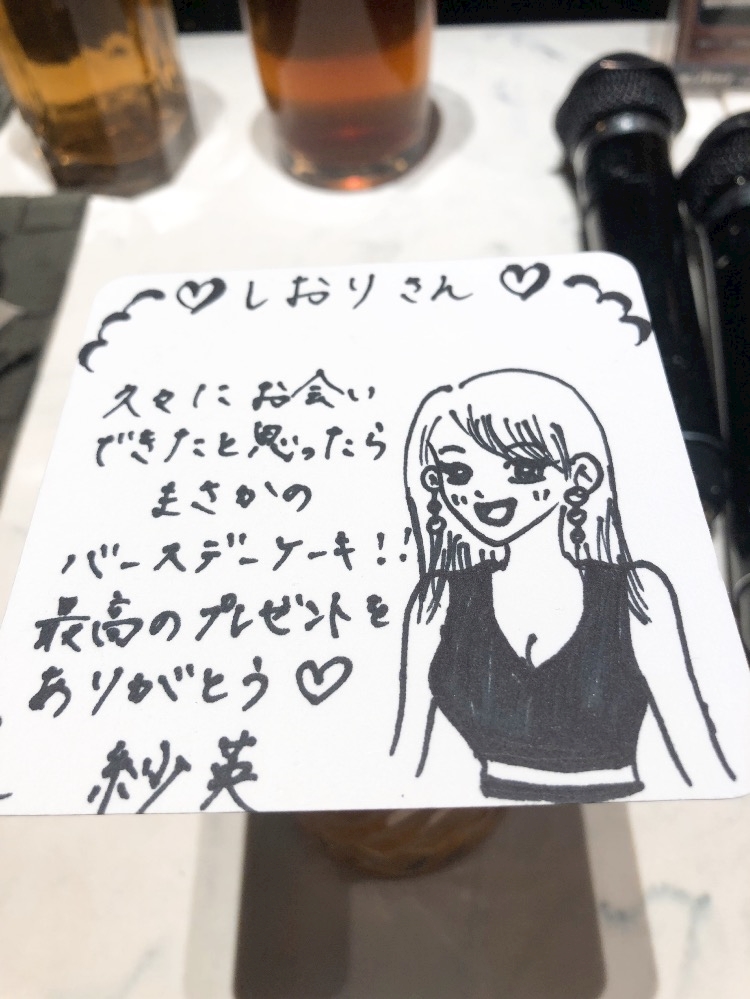 ♡しおりさん♡
久々にお会い
できたと思ったら
まさかの
バースデーケーキ!!
最高のプレゼントを
ありがとう♡
紗英